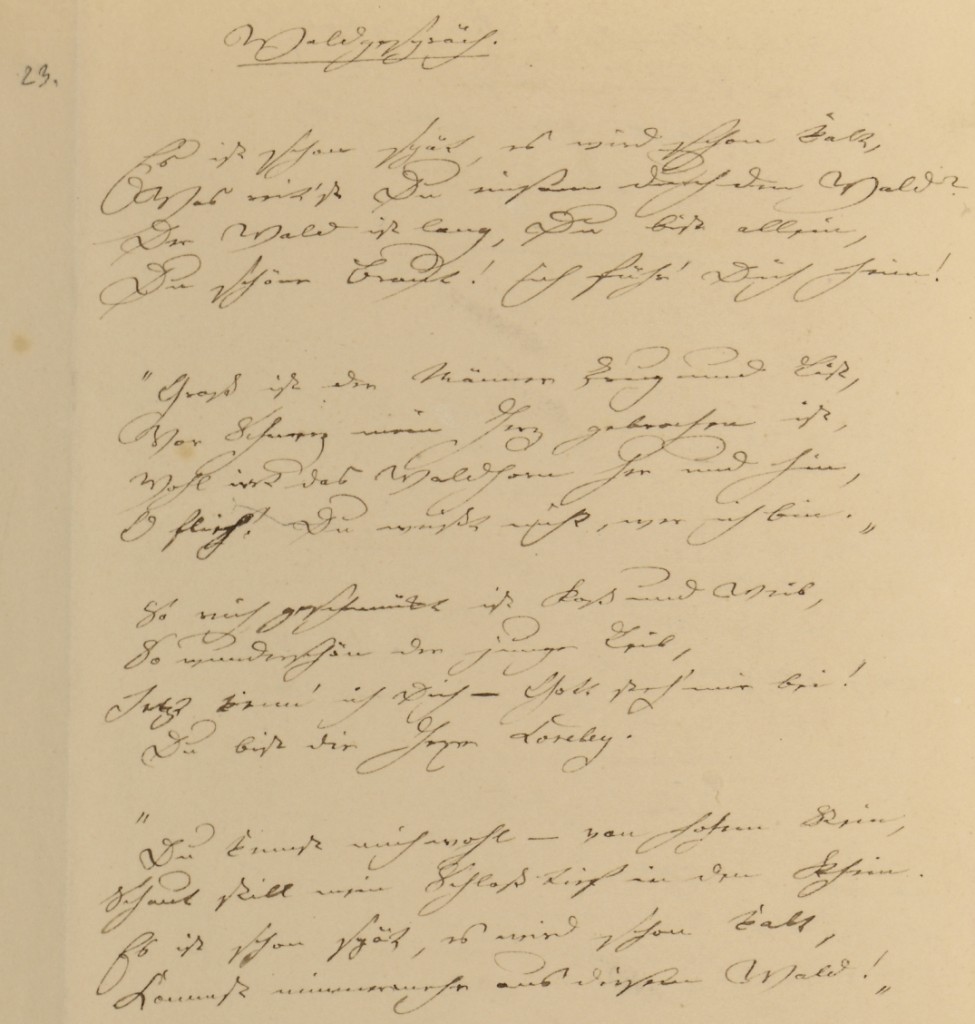 Waldgespräch.
23.
Es ist schon spät, es wird schon kalt,
Was reit'st Du einsam durch den Wald?
Der Wald ist lang, Du bist allein,
Du schöne Braut! ich führ' Dich heim!
"Groß ist der Männer Trug und List,
Vor Schmerz mein Herz gebrochen ist,
Wohl irrt das Waldhorn her und hin,
O flieh'! Du weißt nicht, wer ich bin.„
So reich geschmückt ist Roß und Weib,
So wunderschön der junge Leib,
Jetzt kenn' ich Dich – Gott steh' mir bei!
Du bist die Hexe Loreley.
"Du kennst mich wohl – von hohem Stein,
Schaut still mein Schloß tief in den Rhein.
Es ist schon spät, es wird schon kalt,
Kommst nimmermehr aus diesem Wald!„